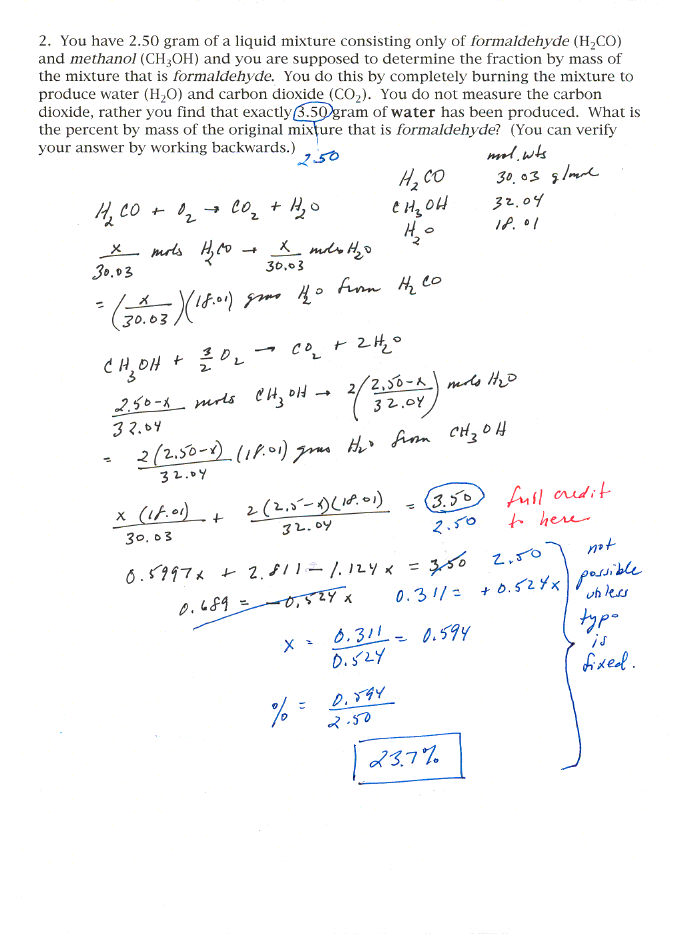 2. You have 2.50 gram of a liquid mixture consisting only of formaldehyde (H₂CO)
and methanol (CH₃OH) and you are supposed to determine the fraction by mass of
the mixture that is formaldehyde. You do this by completely burning the mixture to
produce water (H₂O) and carbon dioxide (CO₂). You do not measure the carbon
dioxide, rather you find that exactly 3.50 gram of water has been produced. What is
the percent by mass of the original mixture that is formaldehyde? (You can verify
your answer by working backwards.)
2.50
mol. wts
H₂CO 30.03 g/mole
CH₃OH 32.04
H₂O 18.01
H₂CO + O₂ → CO₂ + H₂O
x/30.03 mols H₂CO → x/30.03 mols H₂O
= (x/30.03)(18.01) gms H₂O from H₂CO
CH₃OH + 3/2 O₂ → CO₂ + 2H₂O
2.50-x/32.04 mols CH₃OH → 2(2.50-x/32.04) mols H₂O
= 2(2.50-x)/32.04 (18.01) gms H₂O from CH₃OH
x (18.01)/30.03 + 2(2.5-x)(18.01)/32.04 = 3.50 full credit
2.50 to here
0.5997x + 2.811 - 1.124x = 3.50 2.50
0.689 = -0.524x 0.311 = +0.524x
not
possible
unless
typo
is
fixed.
x = 0.311/0.524 = 0.594
% = 0.594/2.50
23.7%